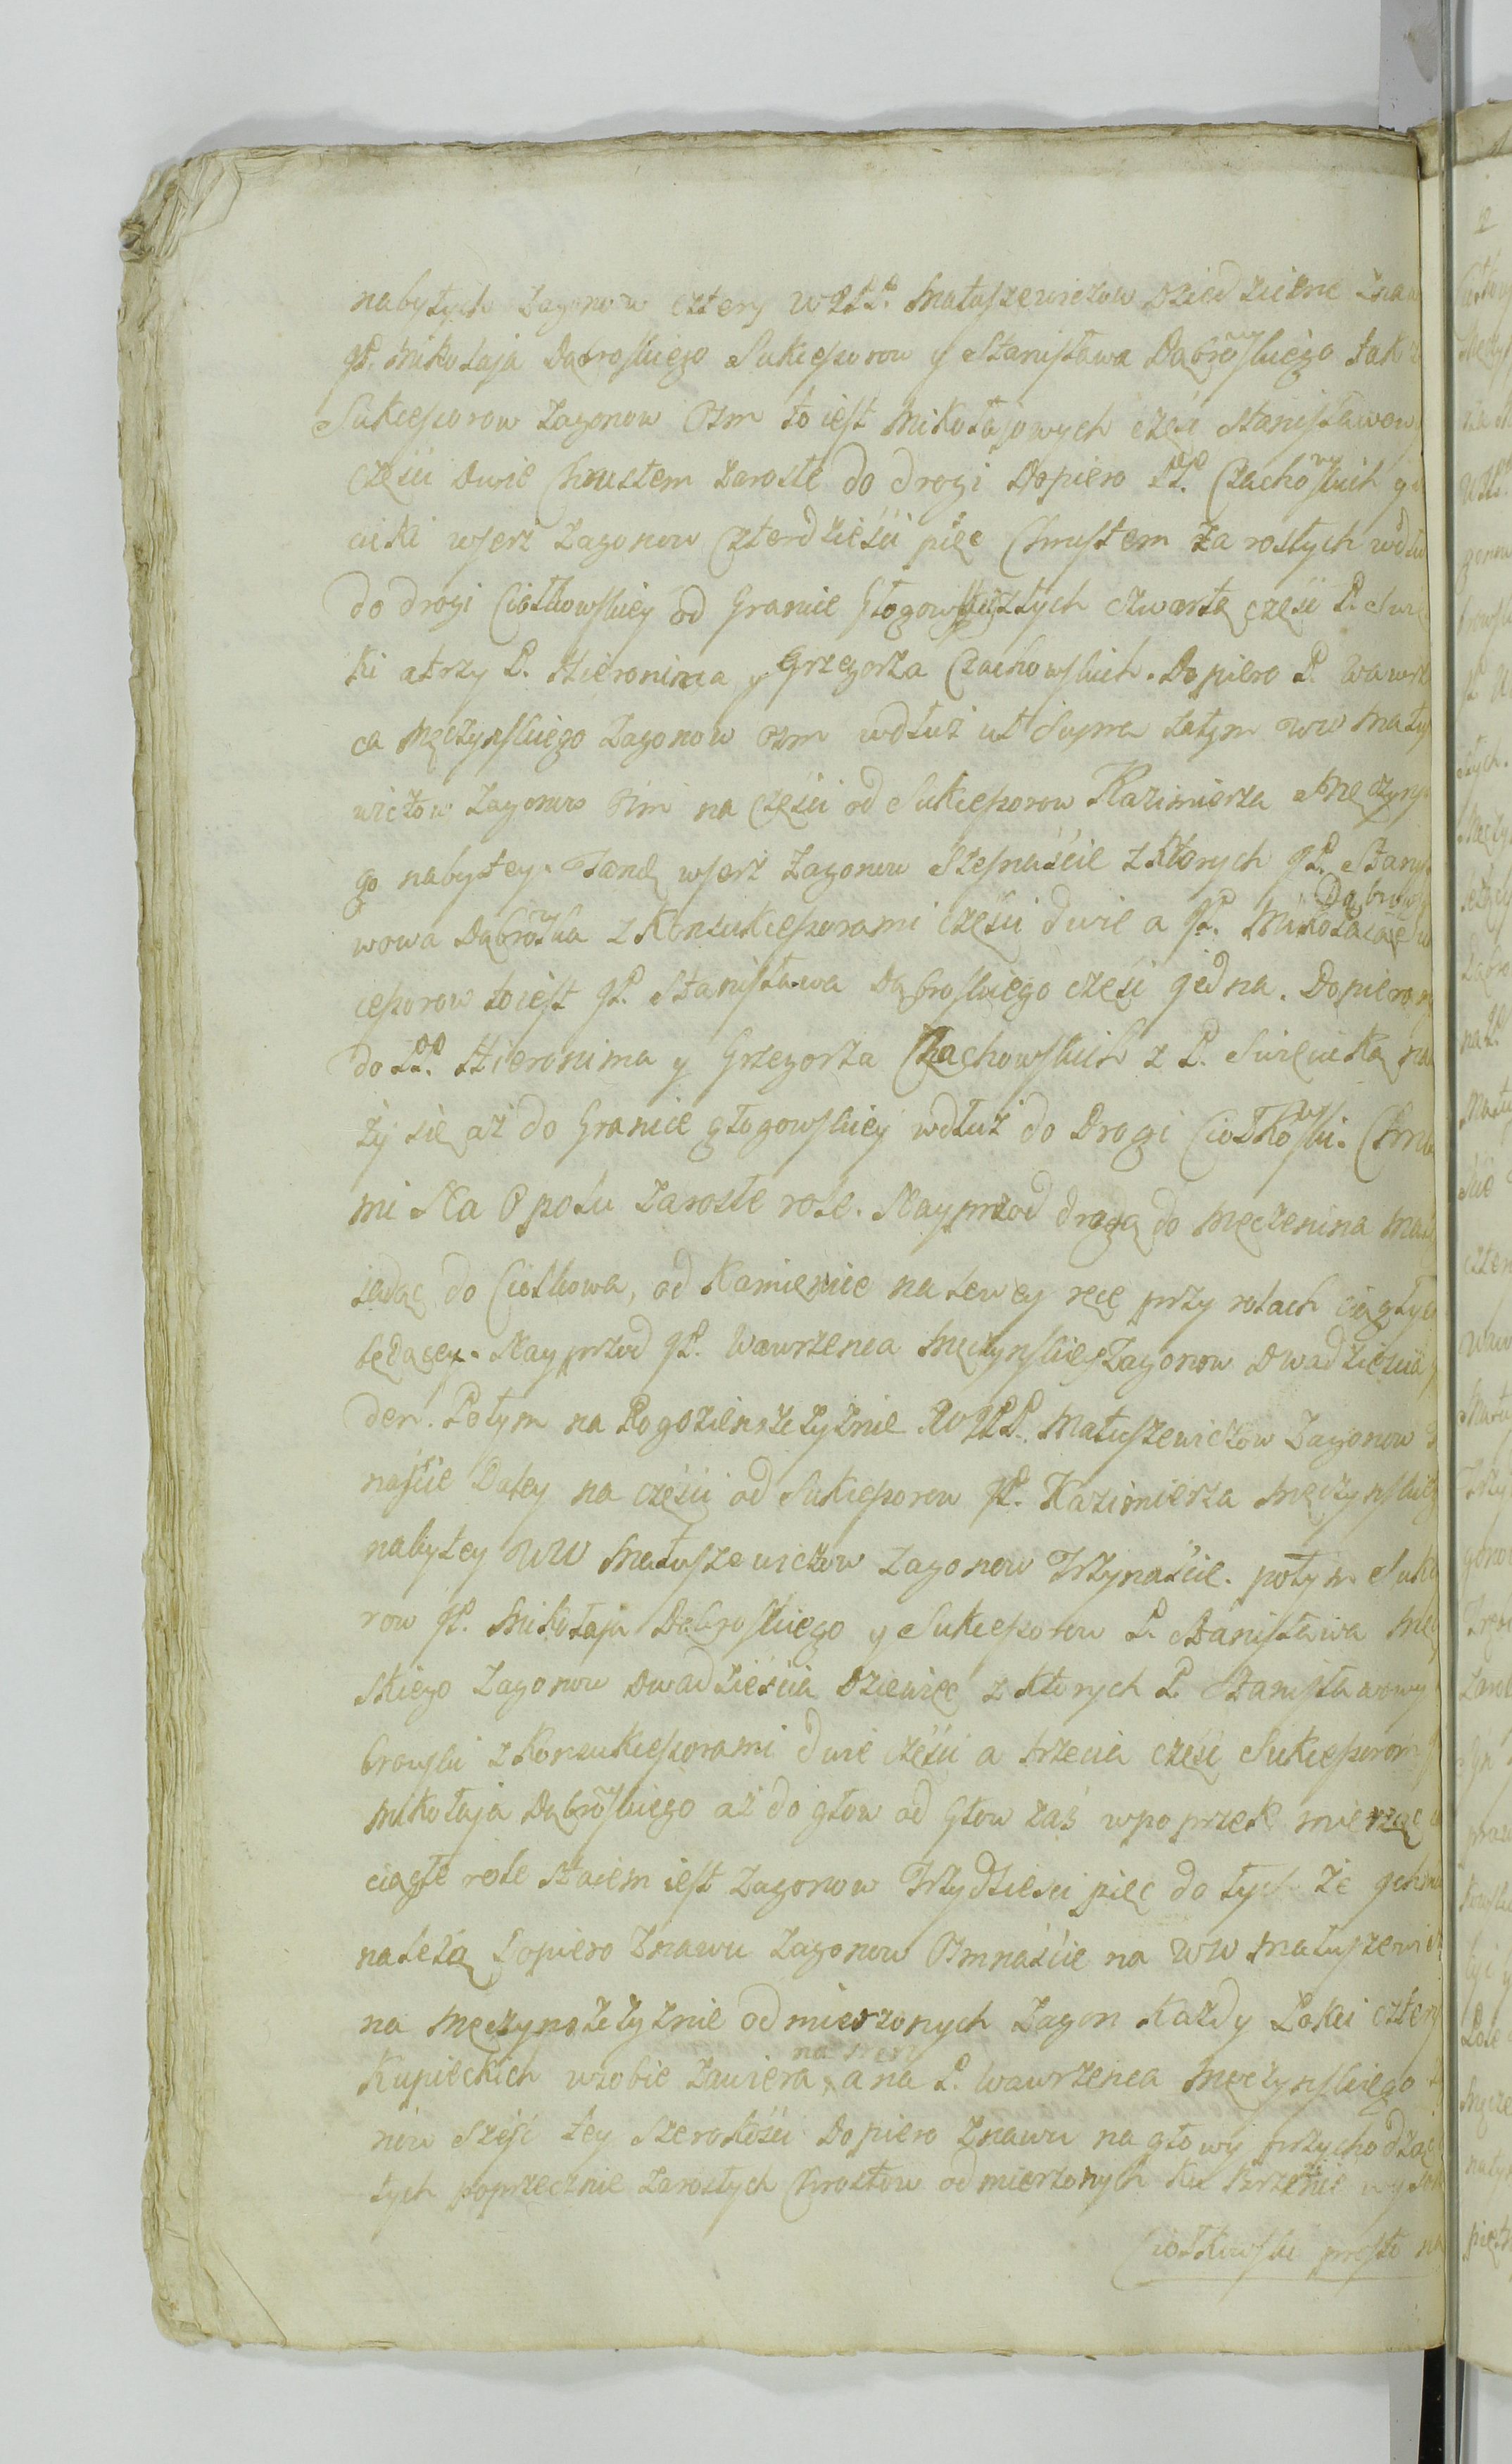 nabytych Zagonow cztery WJPP. Matuszewiczow Dziedziczne Znaw
JP. Mikołaja Dąbroskiego Sukcessorow y Stanisława Dąbrowskiego także
Sukcessorow Zagonow Osm to iest Mikołajowych część Stanisławow
częsci Dwie Chrustem Zarosłe do drogi Dopiero PP. Czachowskich y
cicki wszerz Zagonow Czterdzieści pięć Chrustem Zarosłych wdłu
do drogi Ciołkowskiey od Granic Głogowskich z tych czwarta częśc P. Swię
ki a trzy P. Hieronima y Grzegorza Czachowskich. Dopiero P. Wawrze
ca Męczynskiego Zagonow Osm wdłuż ut Supra Zatym WW Matus
wiczow Zagonow Osm na częsci od Sukcessorow Kazimierza Męczyns
go nabytey. Tandę wszerz Zagonow Szesnaście z Ktorych JP. Stanis
Dąbrows
wowa Dąbroska z Konsukcessorami częsci dwie a JP. Mikołaia Suk
cessorow to iest JP. Stanisława Dąbroskiego częśc jedna. Dopiero
do PP. Hieronima y Grzegorza Czachowskich z P. Swięcicką na
ży się aż do Granic głogowskiey wdłuż do Drogi Ciołkowski. Chru
mi Na Opolu Zarosłe role. Nayprzod drogą do Męczenina
jadąc do Ciołkowa, od Kamienice na lewey ręce przy rolach ciągłych
będącey. Nayprzod JP. Wawrzenca Męczynskieg Zagonow Dwadziescia
den. Potym na Rogozienszczyznie WJPP. Matuszewiczow Zagonow
naście Daley na częsci od Sukcessorow JP. Kazimierza Męczynskieg
nabytey WW Matuszewiczow Zagonow Trzynaście. potym Sukc
row JP. Mikołaja Dąbroskiego y Sukcessorow P. Stanisława
skiego Zagonow Dwadzieścia Dziewięć z Ktorych P. Stanisławowy
browski z Konsukcessorami dwie częsci a trzecia częśc Sukcessorom
Mikołaja Dąbrowskiego aż do głow od Głow zaś wpoprzek mierząc
ciągłe role staiem iest Zagonow Trzydziesci pięc do tychże ychm
należą Dopiero Znawu Zagonow Osmnaście na WW Matuszewicz
na Męczynszczyznie odmierzonych Zagon Każdy Łokci cztery
na szerz
Kupieckich wsobie Zawiera, a na P. Wawrzenca Męczynskiego
now Sześć tey szerokości Dopiero Znawu na głowy przychodząc
tych poprzecznie Zarosłych Chrostow odmierzonych Ku
Ciołkowski prosto na